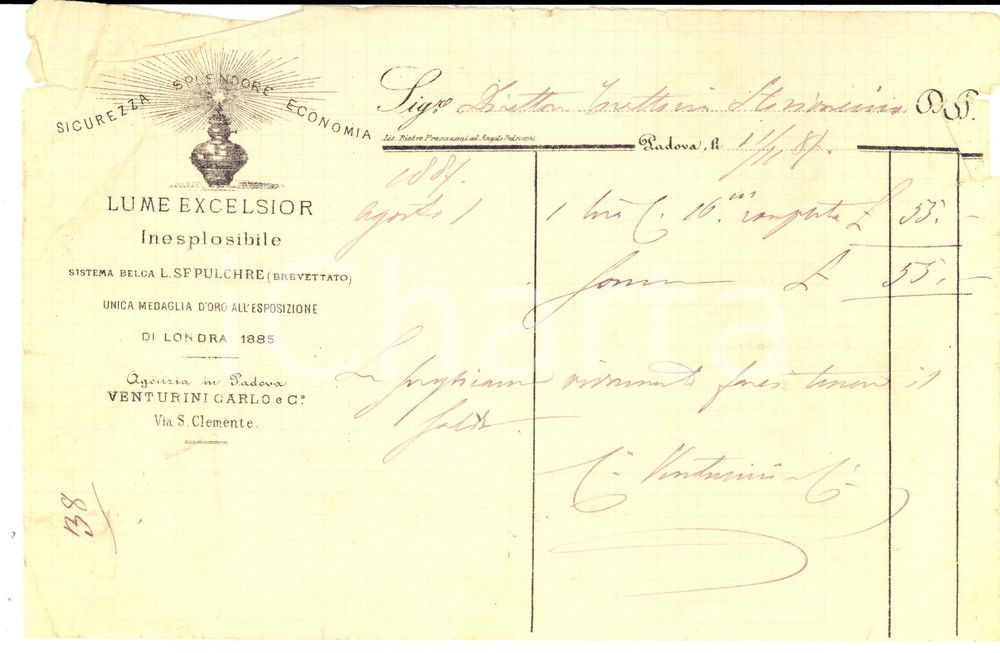 SICUREZZA SPLENDORE ECONOMIA
LUME EXCELSIOR
Inesplosibile
SISTEMA BELGA L. SEPULCHRE (BREVETTATO)
UNICA MEDAGLIA D'ORO ALL'ESPOSIZIONE
DI LONDRA 1885
Agenzia in Padova
VENTURINI CARLO e Cº.
Via S. Clemente.
38
Sigr. Direttore Trattoria Storione D.
Lit. Pietro Fracanzani al Angelo Padova
Padova, li 87.
1887.
Agosto 1 1 C. 16 completa £ 55. -
Somma £ 55. -
La preghiamo vivamente farci tenere il
saldo.
C. Venturini e C.
iCharta